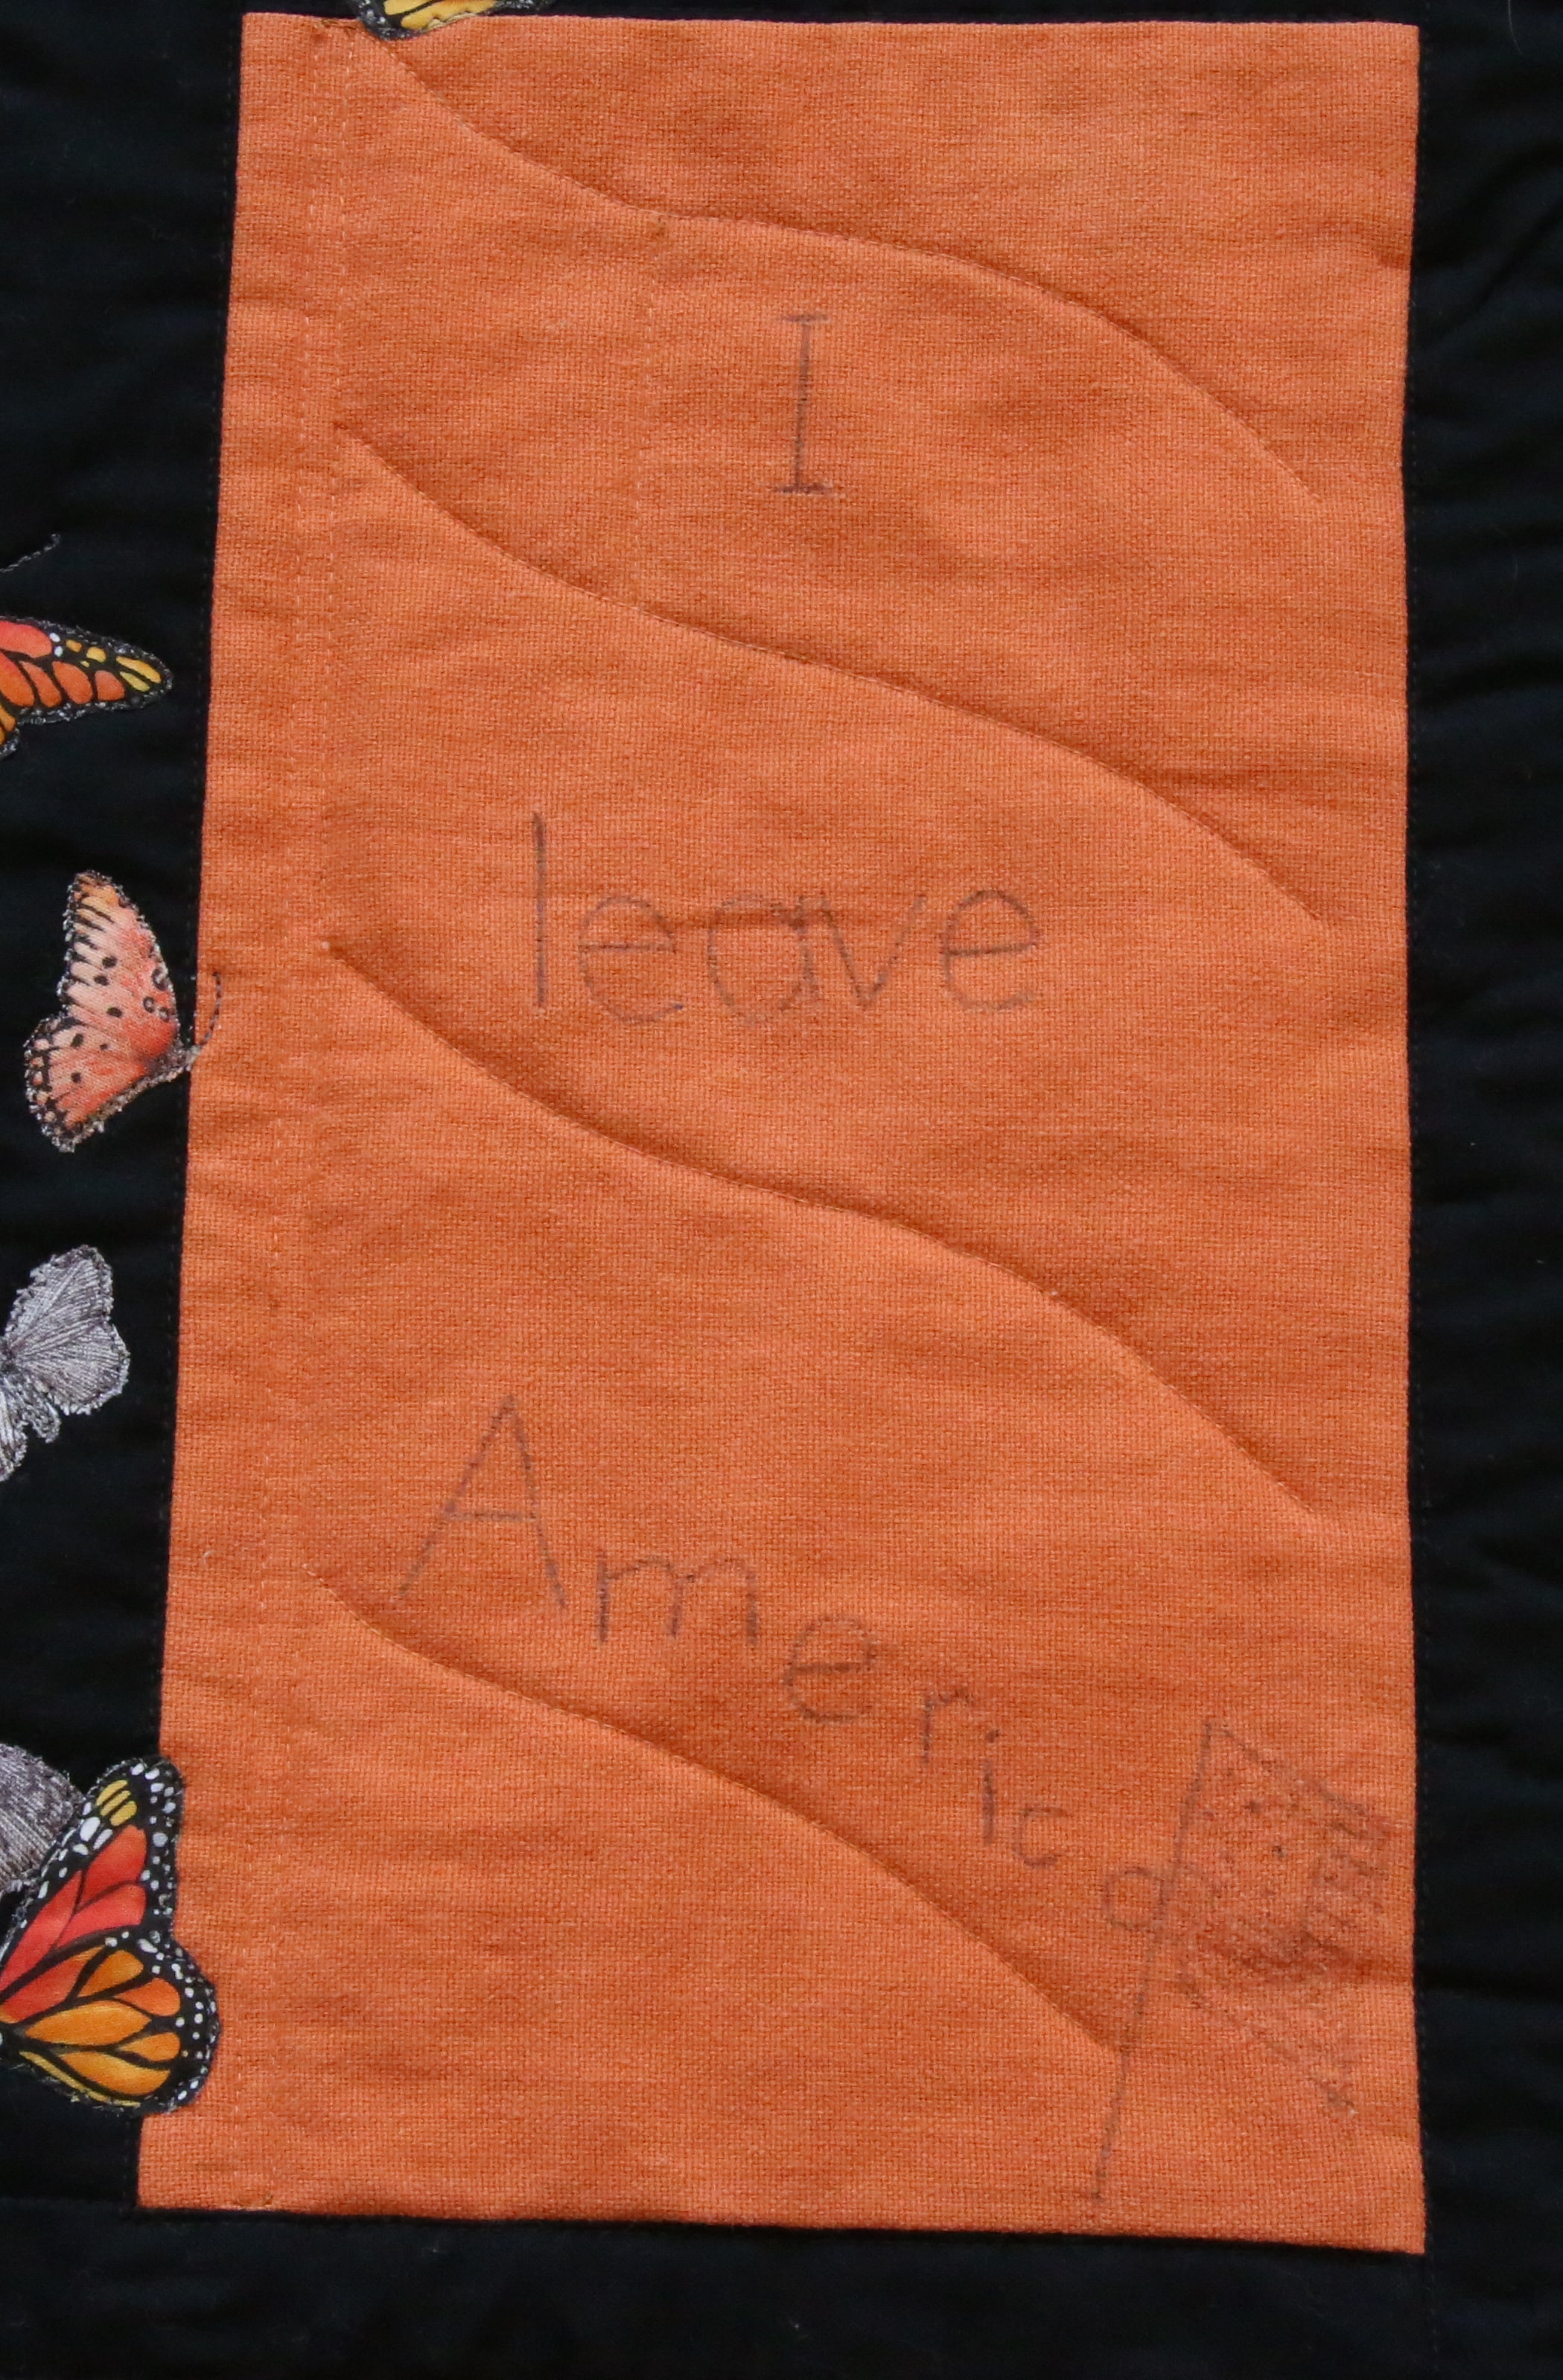 I
leave
America